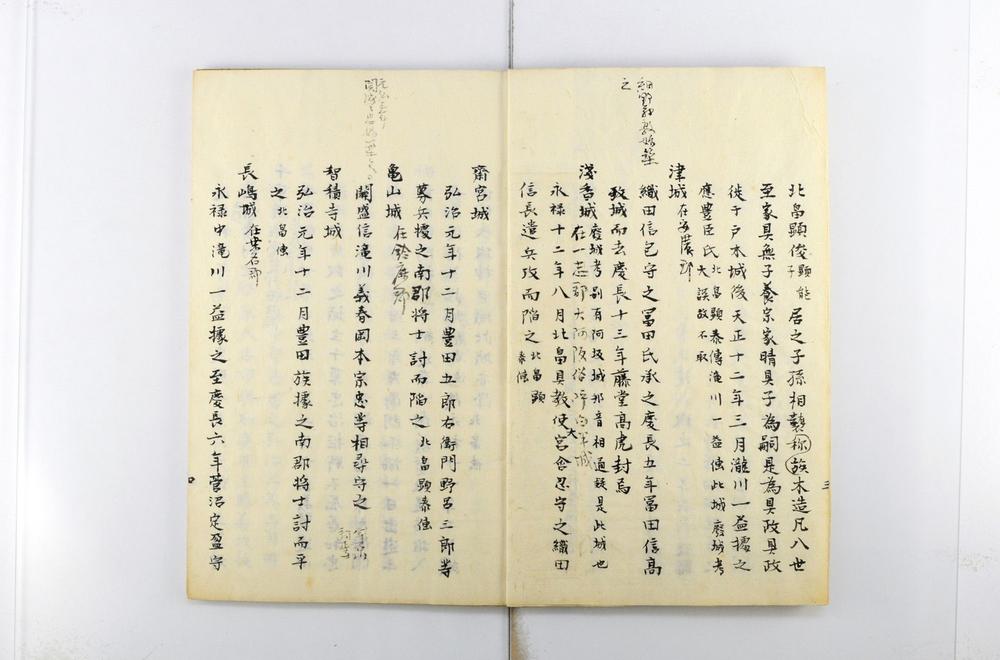 北畠顕俊顕能子居之子孫相襲称族木造凡八世
至家具無子養宗家晴具子為嗣是為具政具政
徙于戸木城後天正十二年三月瀧川一益據之
應豊臣氏北畠顕泰傳滝川一益〻此城廢城考大誤故不取
細野藤敦始築
之
津城在安濃郡
織田信包守之冨田氏承之慶長五年冨田信高
致城而去慶長十三年藤堂高虎封焉
淺香城廢城考別有阿坂城邦音相通設是此城也在一志郡大阿阪俗呼白米城
永禄十二年八月北畠具教使大宮含忍守之織田
信長遣兵攻而陥之北畠顕泰
齋宮城
弘治元年十二月豊田五郎右衛門野呂三郎等
募兵據之南郡将士討而陥之北畠顕泰
亀山城在鈴鹿郡
關盛信滝川義春岡本宗忠等相尋守之
智積寺城
弘治元年十二月豊田族據之南郡将士討而平
之北畠
長嶋城在桒名郡
永禄中滝川一益據之至慶長六年菅沼定盈守
三
四